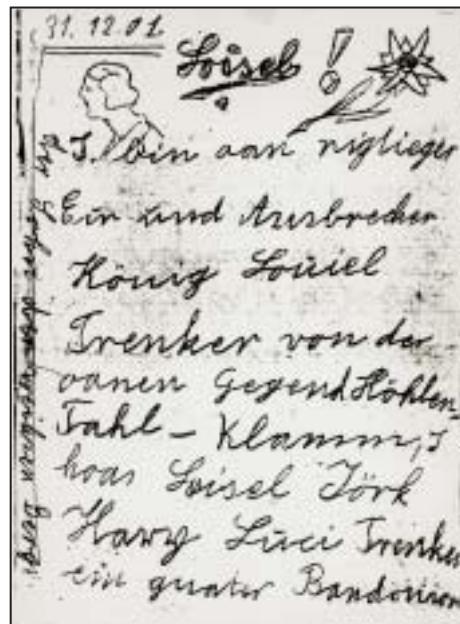 31.12.01
Loisel!
I bin oan
Ein und Ausbrecher
König Louiel
Trenker von der
oanen Gegend Höhlen-
Tahl – Klamm, I
hoas Loisel Jörk
Hary Luci Trenker
ein guater